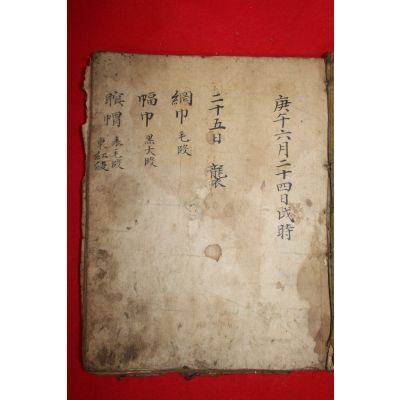 庚午六月二十四日戌時
二十五日 襲
網巾 毛段
幅巾 黑大段
瞑帽 表玄段